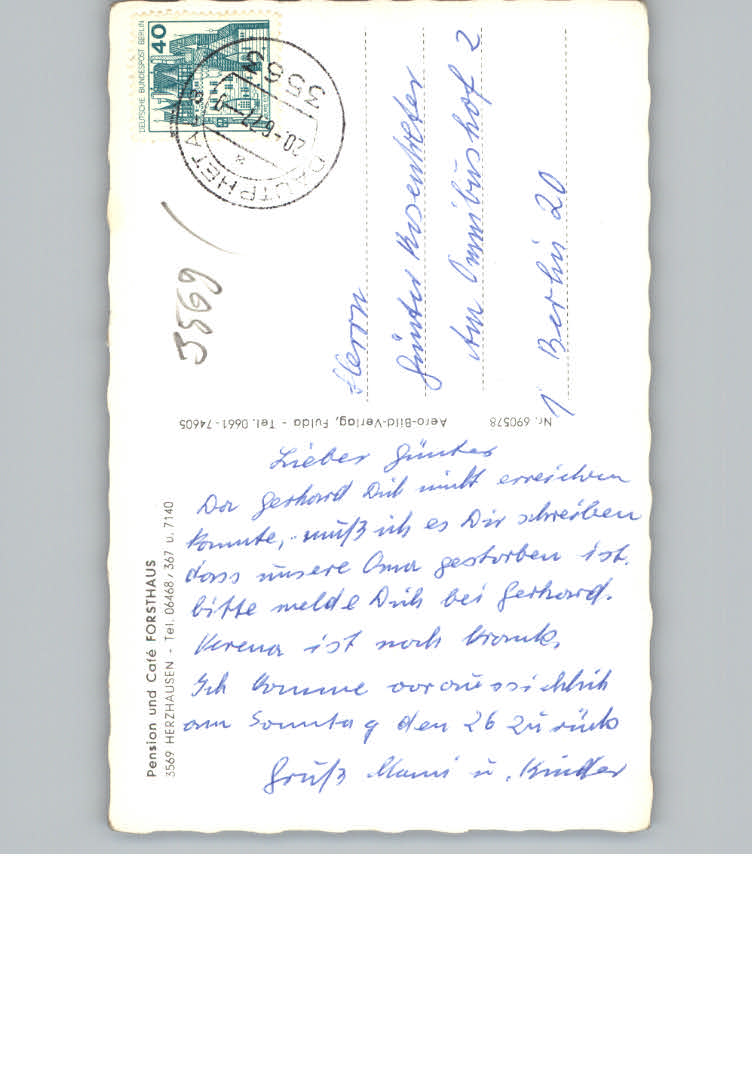 DEUTSCHE BUNDESPOST BERLIN
40
3553
DAUTPHETAL
20.-6.77
3569
Herrn
Günter Rosentreter
Am Omnibushof 2
1 Berlin 20
Nr. 690578
Aero-Bild-Verlag, Fulda - Tel. 0661-74605
Pension und Café FORSTHAUS
3569 HERZHAUSEN - Tel. 06468 / 367 u. 7140
Lieber Günter
Da Gerhard Dich nicht erreichen
konnte, muß ich es Dir schreiben
dass unsere Oma gestorben ist.
bitte melde Dich bei Gerhard.
Verena ist noch krank.
Ich komme voraussichtlich
am Sonntag den 26 zurück
Gruß Mami u. Kinder